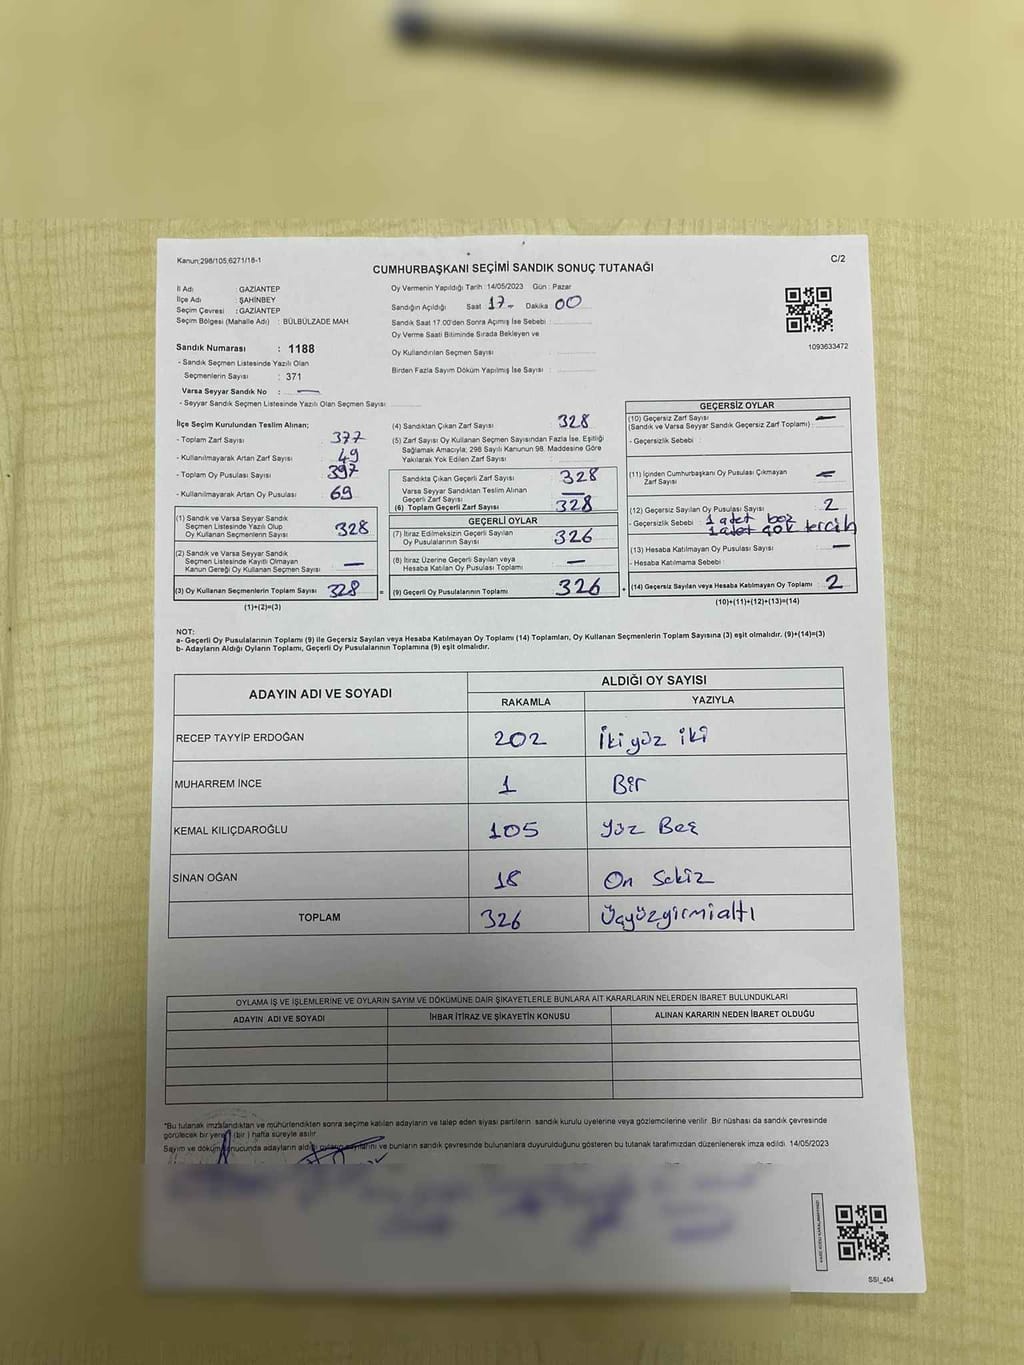 Kanun:298/105;6271/18-1
C/2
CUMHURBAŞKANI SEÇİMİ SANDIK SONUÇ TUTANAĞI
İl Adı : GAZİANTEP
İlçe Adı : ŞAHİNBEY
Seçim Çevresi : GAZİANTEP
Seçim Bölgesi (Mahalle Adı) : BÜLBÜLZADE MAH.
Sandık Numarası : 1188
- Sandık Seçmen Listesinde Yazılı Olan
Seçmenlerin Sayısı : 371
Varsa Seyyar Sandık No : —
- Seyyar Sandık Seçmen Listesinde Yazılı Olan Seçmen Sayısı
Oy Vermenin Yapıldığı Tarih : 14/05/2023 Gün : Pazar
Sandığın Açıldığı Saat 17- Dakika 00
Sandık Saat 17.00'den Sonra Açımış İse Sebebi :
Oy Verme Saati Bitiminde Sırada Bekleyen ve
Oy Kullandırılan Seçmen Sayısı
Birden Fazla Sayım Döküm Yapılmış İse Sayısı :
1093633472
İlçe Seçim Kurulundan Teslim Alınan;
- Toplam Zarf Sayısı 377
- Kullanılmayarak Artan Zarf Sayısı 49
- Toplam Oy Pusulası Sayısı 397
- Kullanılmayarak Artan Oy Pusulası 69
(1) Sandık ve Varsa Seyyar Sandık
Seçmen Listesinde Yazılı Olup
Oy Kullanan Seçmenlerin Sayısı 328
(2) Sandık ve Varsa Seyyar Sandık
Seçmen Listesinde Kayıtlı Olmayan
Kanun Gereği Oy Kullanan Seçmen Sayısı —
(3) Oy Kullanan Seçmenlerin Toplam Sayısı 328
(1)+(2)=(3)
=
(4) Sandıktan Çıkan Zarf Sayısı 328
(5) Zarf Sayısı Oy Kullanan Seçmen Sayısından Fazla İse, Eşitliği
Sağlamak Amacıyla; 298 Sayılı Kanunun 98. Maddesine Göre
Yakılarak Yok Edilen Zarf Sayısı
Sandıkta Çıkan Geçerli Zarf Sayısı 328
Varsa Seyyar Sandıktan Teslim Alınan
Geçerli Zarf Sayısı —
(6) Toplam Geçerli Zarf Sayısı 328
GEÇERLİ OYLAR
(7) İtiraz Edilmeksizin Geçerli Sayılan
Oy Pusulalarının Sayısı 326
(8) İtiraz Üzerine Geçerli Sayılan veya
Hesaba Katılan Oy Pusulası Toplamı —
(9) Geçerli Oy Pusulalarının Toplamı 326
+
GEÇERSİZ OYLAR
(10) Geçersiz Zarf Sayısı —
(Sandık ve Varsa Seyyar Sandık Geçersiz Zarf Toplamı)
- Geçersizlik Sebebi :
(11) İçinden Cumhurbaşkanı Oy Pusulası Çıkmayan
Zarf Sayısı —
(12) Geçersiz Sayılan Oy Pusulası Sayısı 2
- Geçersizlik Sebebi 1 adet boş
1 adet çok tercih
(13) Hesaba Katılmayan Oy Pusulası Sayısı —
- Hesaba Katılmama Sebebi :
(14) Geçersiz Sayılan veya Hesaba Katılmayan Oy Toplamı 2
(10)+(11)+(12)+(13)=(14)
NOT:
a- Geçerli Oy Pusulalarının Toplamı (9) ile Geçersiz Sayılan veya Hesaba Katılmayan Oy Toplamı (14) Toplamları, Oy Kullanan Seçmenlerin Toplam Sayısına (3) eşit olmalıdır. (9)+(14)=(3)
b- Adayların Aldığı Oyların Toplamı, Geçerli Oy Pusulalarının Toplamına (9) eşit olmalıdır.
ADAYIN ADI VE SOYADI
ALDIĞI OY SAYISI
RAKAMLA YAZIYLA
RECEP TAYYİP ERDOĞAN 202 İkiyüz iki
MUHARREM İNCE 1 Bir
KEMAL KILIÇDAROĞLU 105 Yüz Beş
SİNAN OĞAN 18 On Sekiz
TOPLAM 326 Üçyüzyirmialtı
OYLAMA İŞ VE İŞLEMLERİNE VE OYLARIN SAYIM VE DÖKÜMÜNE DAİR ŞİKAYETLERLE BUNLARA AİT KARARLARIN NELERDEN İBARET BULUNDUKLARI
ADAYIN ADI VE SOYADI İHBAR İTİRAZ VE ŞİKAYETİN KONUSU ALINAN KARARIN NEDEN İBARET OLDUĞU
*Bu tutanak imzalandıktan ve mühürlendikten sonra seçime katılan adayların ve talep eden siyasi partilerin sandık kurulu üyelerine veya gözlemcilerine verilir. Bir nüshası da sandık çevresinde
görülecek bir yere (bir) hafta süreyle asılır.
Sayım ve döküm sonucunda adayların aldığı oyların sayılarını ve bunların sandık çevresinde bulunanlara duyurulduğunu gösteren bu tutanak tarafımızdan düzenlenerek imza edildi. 14/05/2023
SSI_404